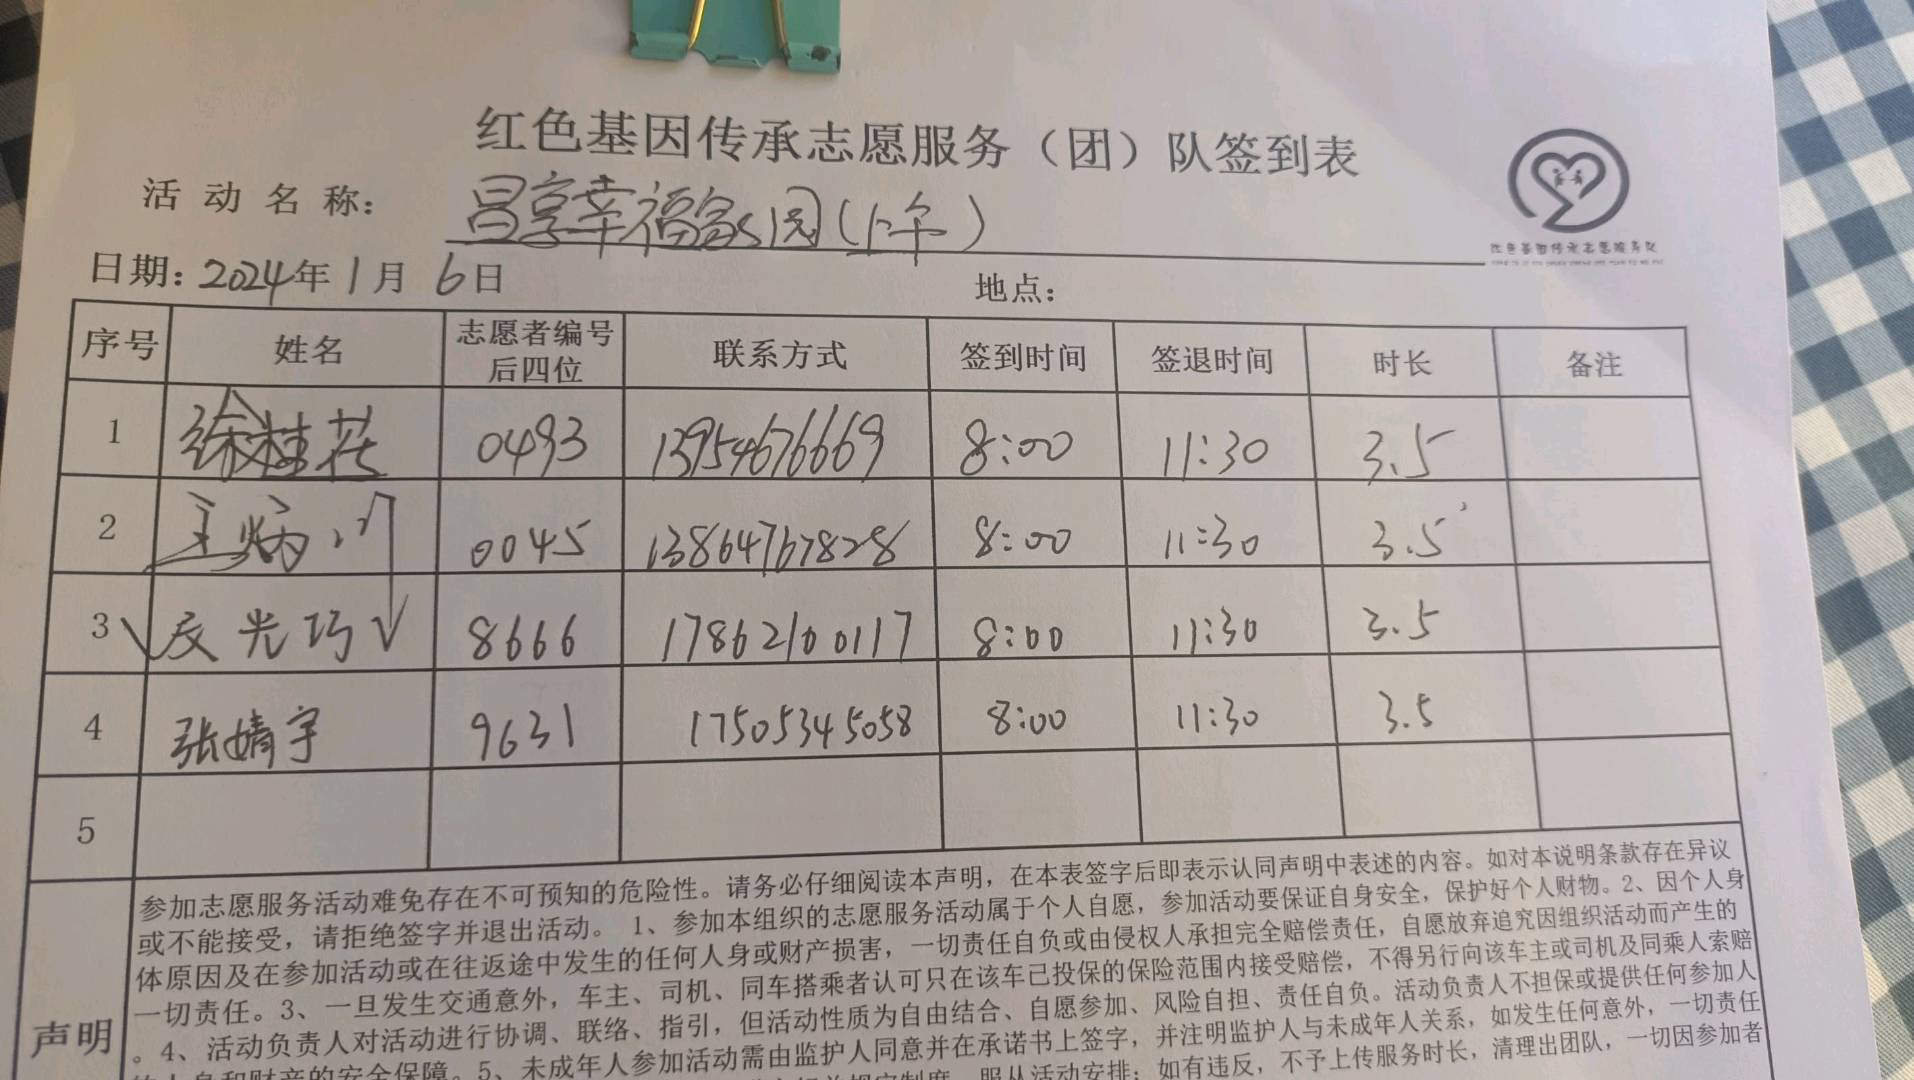 红色基因传承志愿服务（团）队签到表
活动名称：昌享幸福家园（上午）
红色基因传承志愿服务队
日期：2024年1月6日 地点：
序号 姓名 志愿者编号后四位 联系方式 签到时间 签退时间 时长 备注
1 徐桂花 0493 13954676669 8:00 11:30 3.5
2 王炳川 0045 13864767828 8:00 11:30 3.5
3 光巧 8666 17862100117 8:00 11:30 3.5
4 张婧宇 9631 17505345058 8:00 11:30 3.5
5
声明
参加志愿服务活动难免存在不可预知的危险性。请务必仔细阅读本声明，在本表签字后即表示认同声明中表述的内容。如对本说明条款存在异议
或不能接受，请拒绝签字并退出活动。 1、参加本组织的志愿服务活动属于个人自愿，参加活动要保证自身安全，保护好个人财物。2、因个人身
体原因及在参加活动或在往返途中发生的任何人身或财产损害，一切责任自负或由侵权人承担完全赔偿责任，自愿放弃追究因组织活动而产生的
一切责任。3、一旦发生交通意外，车主、司机、同车搭乘者认可只在该车已投保的保险范围内接受赔偿，不得另行向该车主或司机及同乘人索赔
。4、活动负责人对活动进行协调、联络、指引，但活动性质为自由结合、自愿参加、风险自担、责任自负。活动负责人不担保或提供任何参加人
的人身和财产的安全保障。5、未成年人参加活动需由监护人同意并在承诺书上签字，并注明监护人与未成年人关系，如发生任何意外，一切责任
服从活动安排；如有违反，不予上传服务时长，清理出团队，一切因参加者